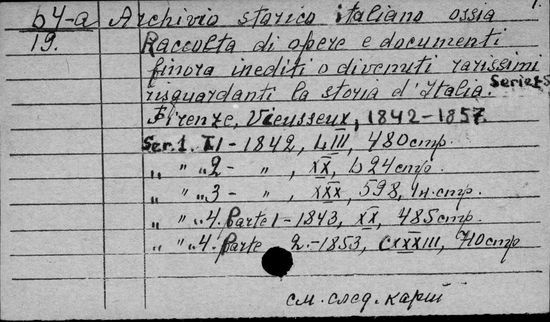 64-a Archivio storico italiano ossia 1.
19. Raccolta di opere e documenti
finora inediti o divenuti rarissimi
risguardanti la storia d'Italia. Serie 1-5
Firenze, Vieusseux, 1842-1857
Ser. 1. T1 - 1842, LIII, 480 cmp.
„ „ „ 2 - „ , XX, 624 cmp.
„ „ „ 3 - „ , XXX, 598, 1н. cmp.
„ „ „ 4. Parte 1 - 1843, XX, 485 cmp.
„ „ „ 4. Parte 2. - 1853, CXXIII, 710 cmp
см. след. карт